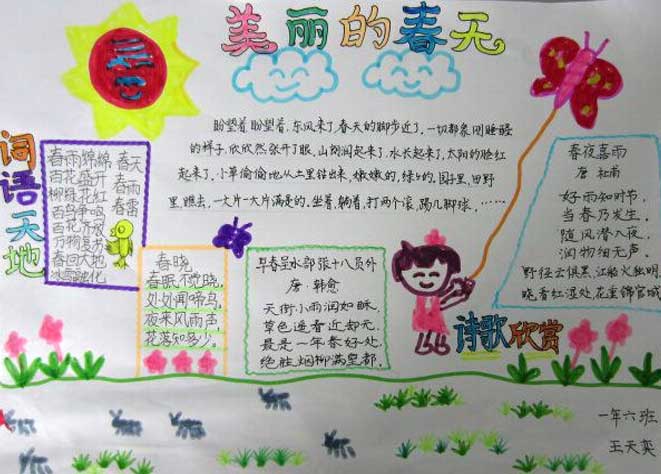 美丽的春天
盼望着,盼望着,东风来了,春天的脚步近了,一切都象刚睡醒
的样子,欣欣然张开了眼,山朗润起来了,水长起来了,太阳的脸红
起来了,小草偷偷地从土里钻出来,嫩嫩的,绿绿的,园子里,田野
里,瞧去,一大片一大片满是的,坐着,躺着,打两个滚,踢几脚球,……
词语天地
春雨绵绵
百花盛开
柳绿花红
百鸟争鸣
百花齐放
万物复苏
春回大地
冰雪融化
春天
春雨
春雷
春晓
春眠不觉晓,
处处闻啼鸟,
夜来风雨声,
花落知多少。
早春呈水部张十八员外
唐·韩愈
天街小雨润如酥,
草色遥看近却无,
最是一年春好处,
绝胜烟柳满皇都。
春夜喜雨
唐 杜甫
好雨知时节,
当春乃发生。
随风潜入夜,
润物细无声。
野径云俱黑,江船火独明
晓看红湿处,花重锦官城
诗歌欣赏
一年六班